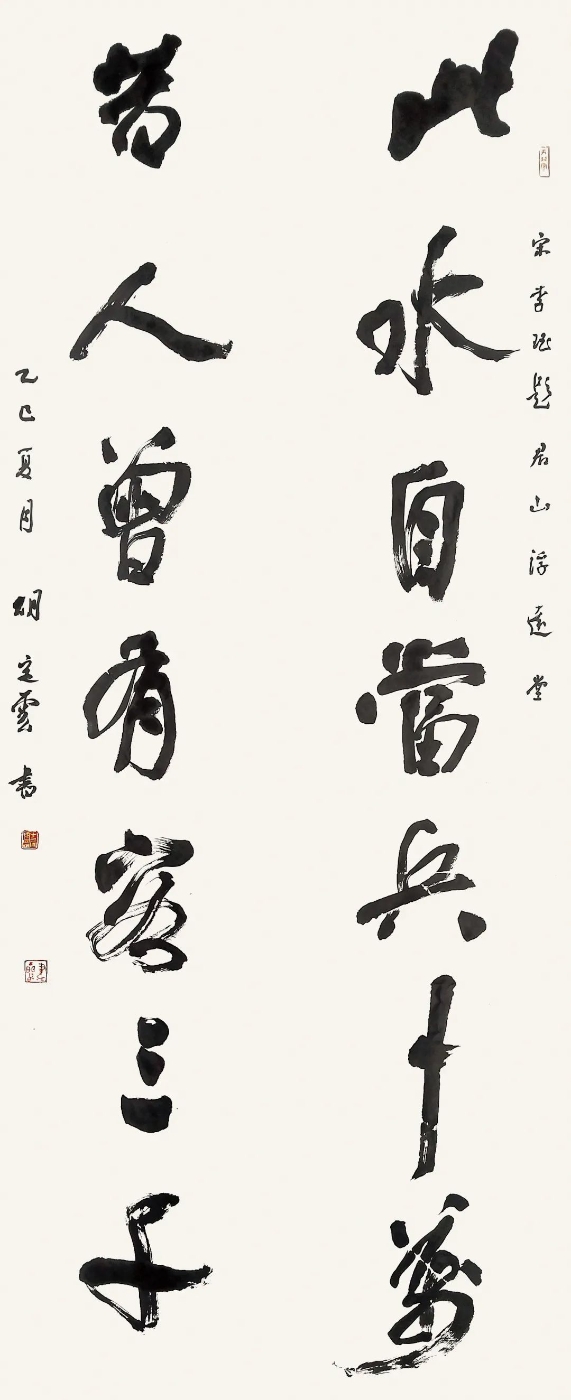 宋李珏題君山浮遠堂
此水自當兵十萬
昔人曾有客三千
乙巳夏月胡定雲書